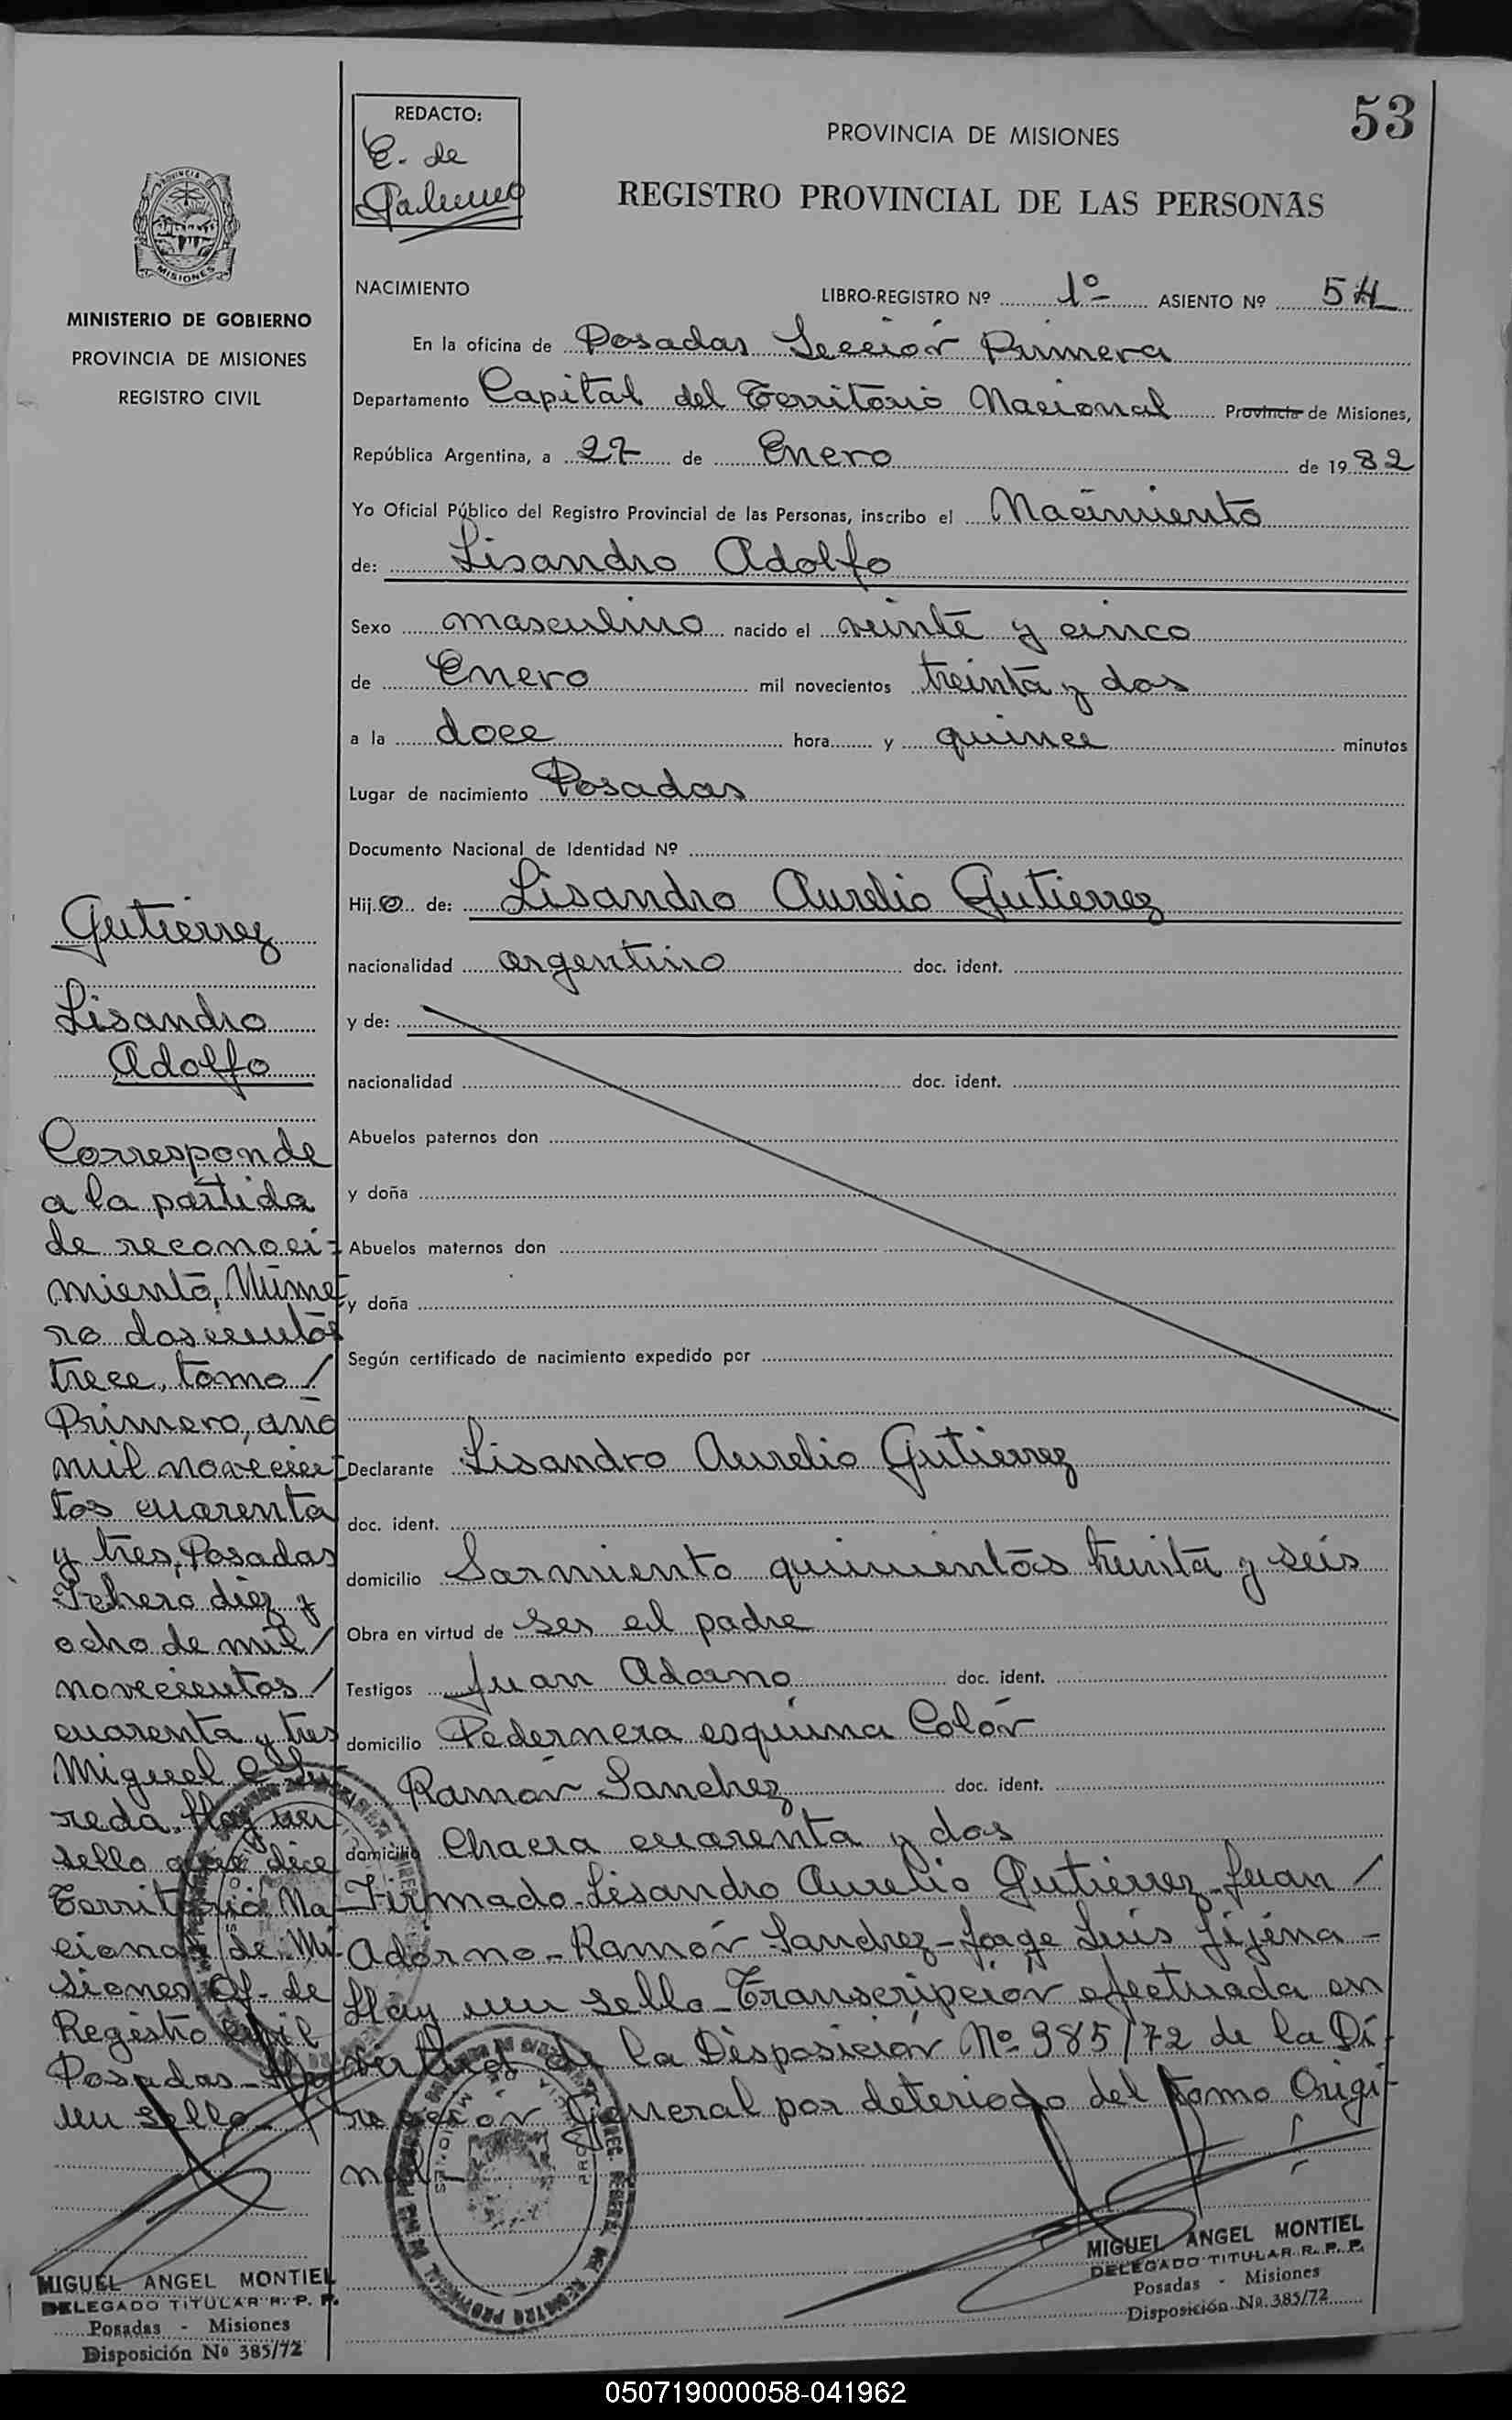 53
REDACTO:
E. de
Palumo
PROVINCIA DE MISIONES
REGISTRO PROVINCIAL DE LAS PERSONAS
PROVINCIA DE
MISIONES
MINISTERIO DE GOBIERNO
PROVINCIA DE MISIONES
REGISTRO CIVIL
NACIMIENTO
LIBRO-REGISTRO Nº 1º ASIENTO Nº 54
En la oficina de Posadas Sección Primera
Departamento Capital del Territorio Nacional Provincia de Misiones,
República Argentina, a 27 de Enero de 1932
Yo Oficial Público del Registro Provincial de las Personas, inscribo el Nacimiento
de: Lisandro Adolfo
Sexo masculino nacido el veinte y cinco
de Enero mil novecientos treinta y dos
a la doce hora y quince minutos
Lugar de nacimiento Posadas
Documento Nacional de Identidad Nº
Hijo de: Lisandro Aurelio Gutierrez
nacionalidad argentino doc. ident.
y de:
nacionalidad doc. ident.
Abuelos paternos don
y doña
Abuelos maternos don
y doña
Según certificado de nacimiento expedido por
Declarante Lisandro Aurelio Gutierrez
doc. ident.
domicilio Sarmiento quinientos treinta y seis
Obra en virtud de ser el padre
Testigos Juan Adorno doc. ident.
domicilio Pedernera esquina Colón
Ramón Sanchez doc. ident.
domicilio Chacra cuarenta y dos
Firmado-Lisandro Aurelio Gutierrez-Juan /
Adorno-Ramón Sanchez-Jorge Luis Jijena-
Hay un sello-Transcripción efectuada en
virtud de la Disposición Nº 385/72 de la Di-
rección General por deterioro del tomo Origi-
nal
Gutierrez
Lisandro
Adolfo
Corresponde
a la partida
de reconoci-
miento, Núme-
ro doscientos
trece, tomo /
Primero, año
mil novecien-
tos cuarenta
y tres, Posadas
Febrero diez y
ocho de mil /
novecientos /
cuarenta y tres
Miguel
reda. Hay un
sello que dice
Territorio Na-
cional de Mi-
siones Of. de
Registro Civil
Posadas-Hay
un sello-
MIGUEL ANGEL MONTIEL
DELEGADO TITULAR R. P. P.
Posadas - Misiones
Disposición Nº 385/72
MIGUEL ANGEL MONTIEL
DELEGADO TITULAR R. P. P.
Posadas - Misiones
Disposición Nº 385/72
050719000058-041962